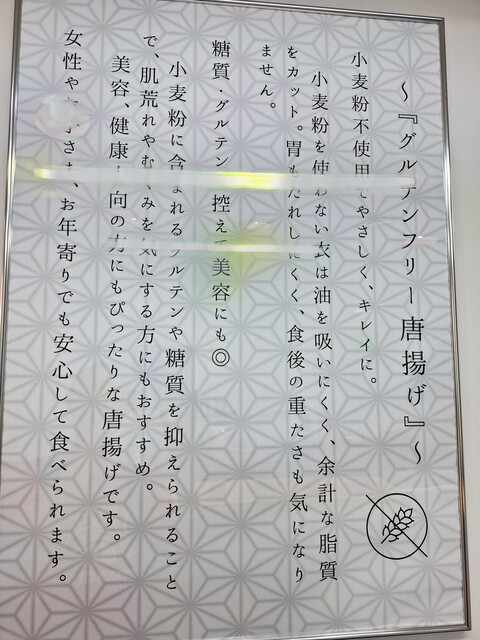 〜『グルテンフリー唐揚げ』〜
小麦粉不使用でやさしく、キレイに。
小麦粉を使わない衣は油を吸いにくく、余計な脂質
をカット。胃もたれしにくく、食後の重たさも気になり
ません。
糖質・グルテン 控えて美容にも◎
小麦粉に含まれるグルテンや糖質を抑えられること
で、肌荒れやむくみを気にする方にもおすすめ。
美容、健康 向の方にもぴったりな唐揚げです。
女性や さま、お年寄りでも安心して食べられます。